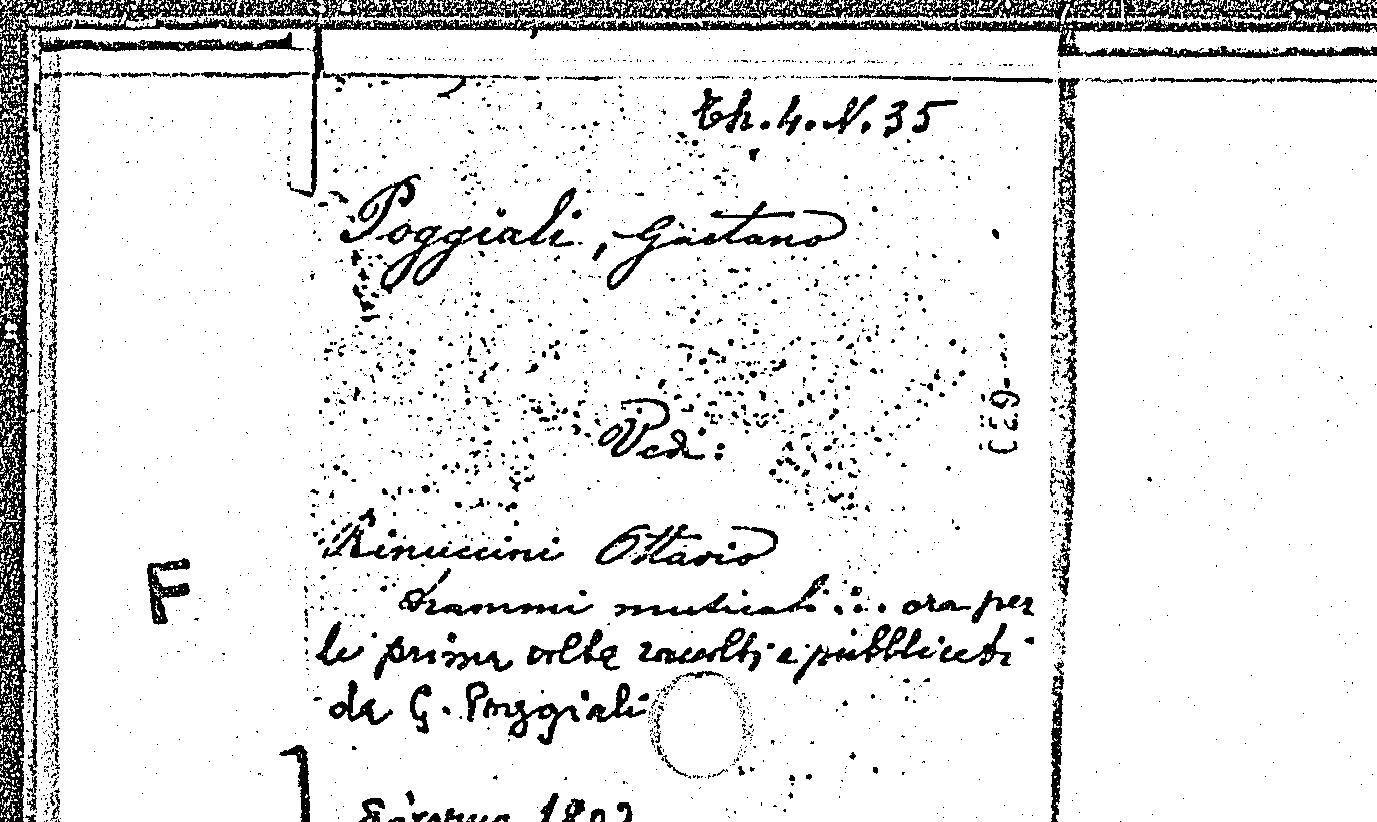 Th. 4. N. 35
Poggiali, Gaetano
Vedi:
Rinuccini Ottavio
Drammi musicali ... ora per
la prima volta raccolti e pubblicati
da G. Poggiali
F
Livorno 1802